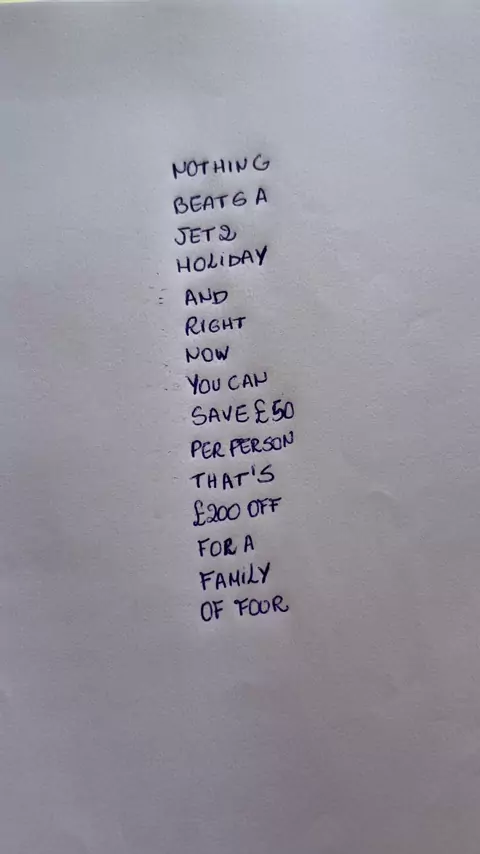 NOTHING
BEATS A
JET2
HOLIDAY
AND
RIGHT
NOW
YOU CAN
SAVE £50
PER PERSON
THAT'S
£200 OFF
FOR A
FAMILY
OF FOUR